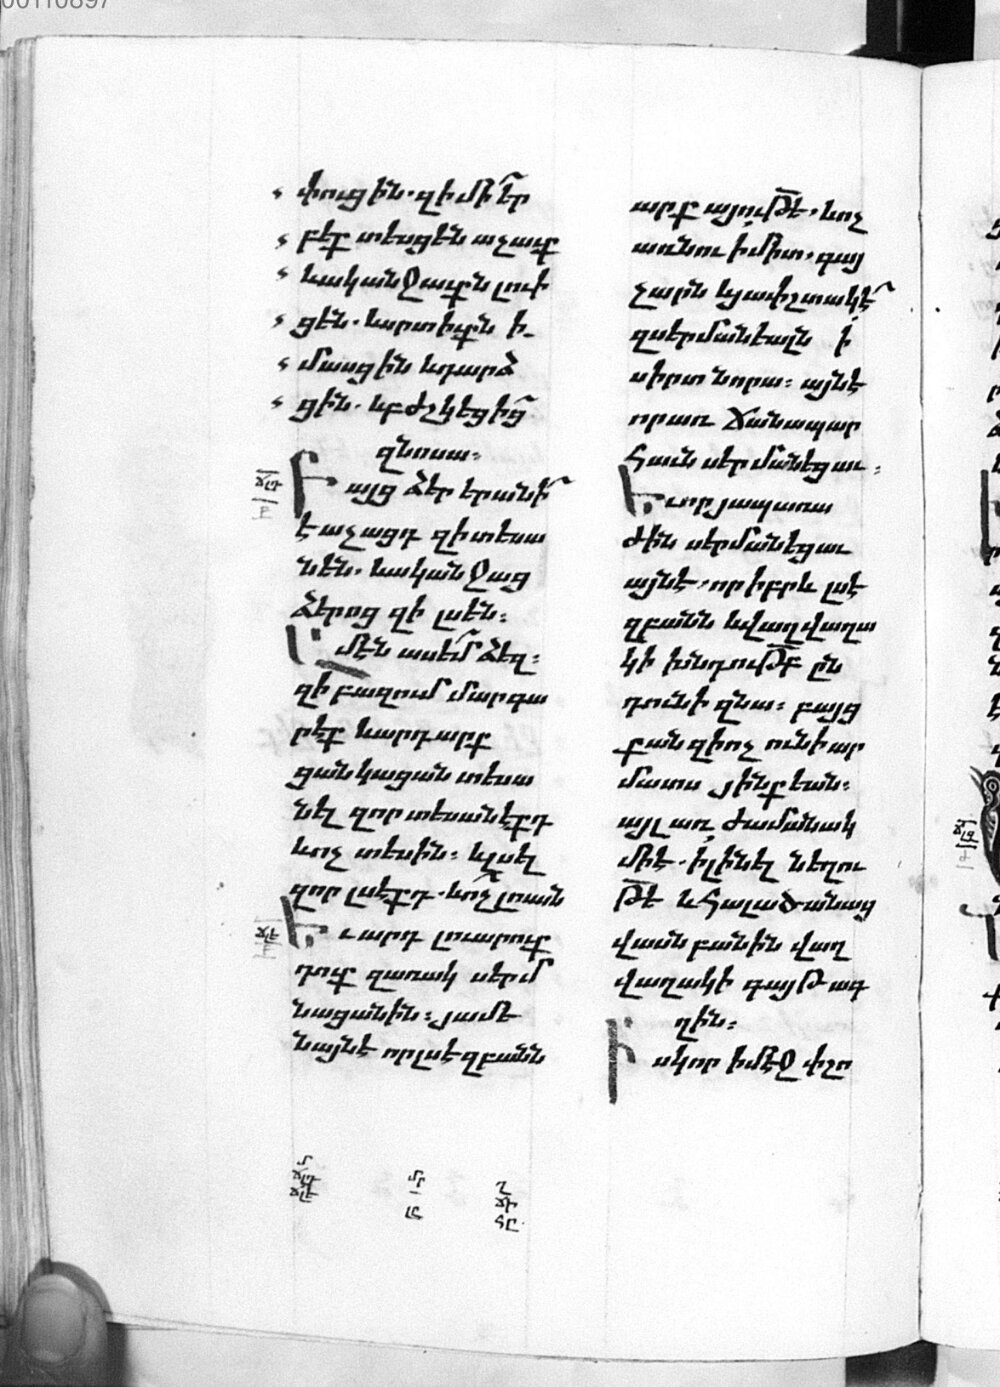 00110897
փուցին. զի մի եր
բեք տեսցեն աչաւք
և ականջաւքն լուի
ցեն. և սրտիւքն ի
մասցին և դարձ
ցին. և բժշկեցից
զնոսա։
Բայց ձեր երանի
է աչացդ զի տեսա
նեն. և ականջաց
ձերոց զի լսեն։
Ամէն ասեմ ձեզ։
զի բազում մարգա
րէք և արդարք
ցանկացան տեսա
նել զոր տեսանէքդ
և ոչ տեսին։ և լսել
զոր լսէքդ. և ոչ լուան
Եւ արդ լուարուք
դուք զառակ սերմ
նացանին։ յամե
նայնէ որ լսէ զբանն
արքայութե, և ոչ
առնու ի միտ, գայ
չարն և յափշտակէ
զսերմանեալն ի
սիրտ նորա։ այն է
որ առ ճանապար
հաւն սերմանեցաւ։
Եւ որ յապառա
ժին սերմանեցաւ
այն է, որ իբրև լսէ
զբանն և վաղվաղա
կի խնդութբ ըն
դունի զնա։ բայց
քանզի ոչ ունի ար
մատս յինքեան։
այլ առ ժամանակ
մի է. ի լինել նեղու
թե և հալածանաց
վասն բանին վաղ
վաղակի գայթագ
ղին։
Իսկ որ ի մէջ փշո